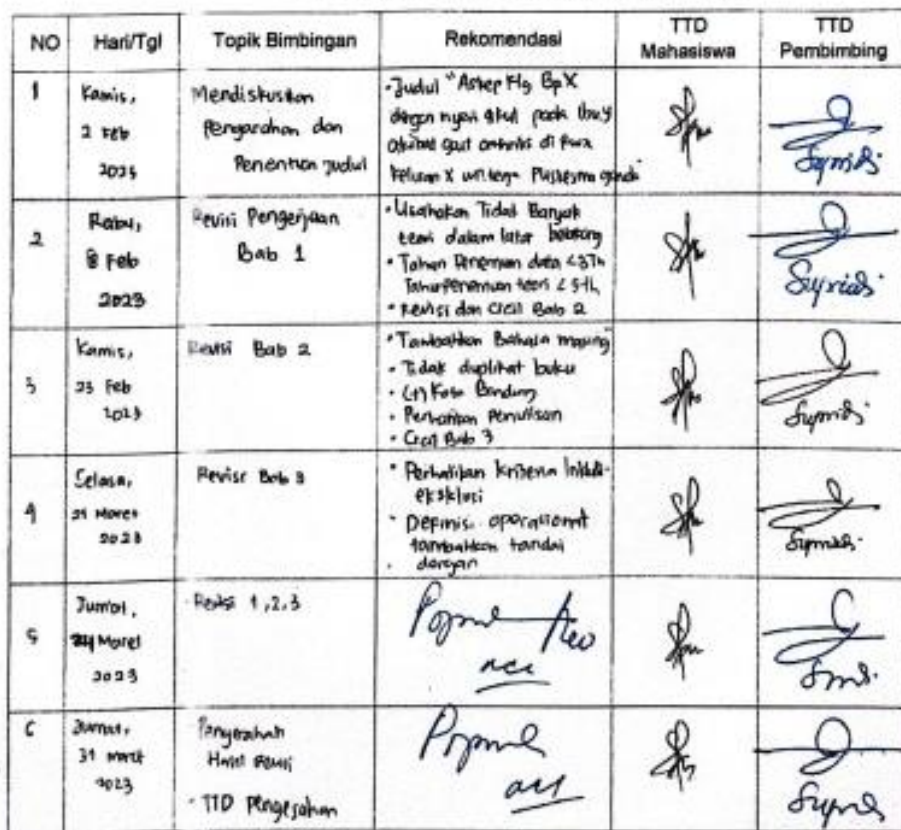 NO Hari/Tgl Topik Bimbingan Rekomendasi TTD Mahasiswa TTD Pembimbing
1
Kamis,
2 Feb
2023
Mendiskusikan
Pengarahan dan
Penentuan Judul
• Judul "Askep Klg Bp X
dengan nyeri akut pada Ibu Y
akibat gout arthritis di
X Puskesmas
2
Rabu,
8 Feb
2023
Revisi Pengerjaan
Bab 1
• Usahakan Tidak Banyak
teori dalam latar belakang
• Tahun Penemuan data <3Th
Tahun Penemuan teori <5th
• Revisi dan Cicil Bab 2
3
Kamis,
23 Feb
2023
Revisi Bab 2
• Tambahkan Bahasa
• Tidak duplikat buku
• (+)
• Perhatikan Penulisan
• Cicil Bab 3
4
Selasa,
21 Maret
2023
Revisi Bab 3
• Perhatikan kriteria Inklusi-
eksklusi
• Definisi operasional
tambahkan tandai
dengan
5
Jumat,
24 Maret
2023
Revisi 1,2,3
acc
6
Jumat,
31 Maret
2023
Penyerahan
Hasil Revisi
• TTD Pengesahan
acc